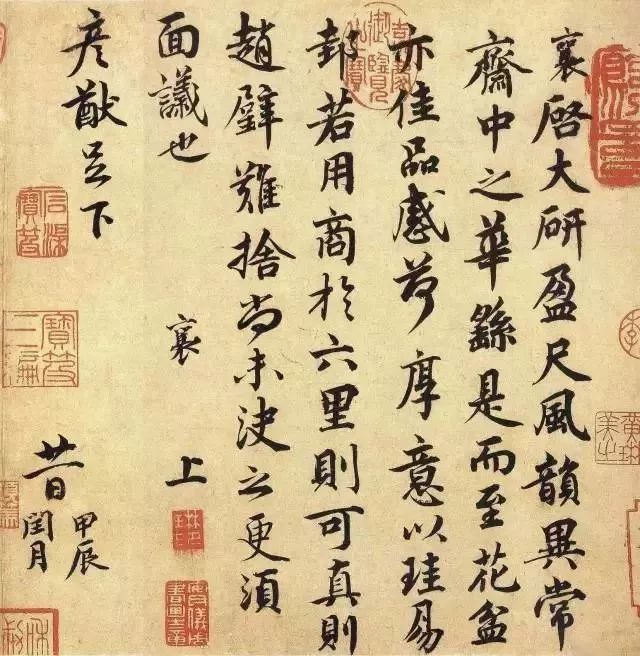 襄啓大研盈尺風韻異常
齋中之華繇是而至花盆
亦佳品感荷厚意以珪易
邽若用商於六里則可真則
趙璧難捨尚未決之更須
面議也
襄上
彥猷足下
廿一日
甲辰
閏月
黃琳美之
琳印
寶笈三編